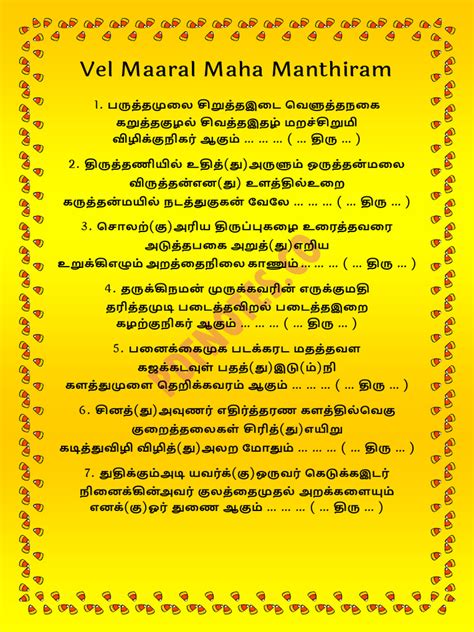 Vel Maaral Maha Manthiram
1. பருத்தமுலை சிறுத்தஇடை வெளுத்தநகை
கறுத்தகுழல் சிவத்தஇதழ் மறச்சிறுமி
விழிக்குநிகர் ஆகும் ... ... ... ( ... திரு ... )
2. திருத்தணியில் உதித்(து)அருளும் ஒருத்தன்மலை
விருத்தன்என(து) உளத்தில்உறை
கருத்தன்மயில் நடத்துகுகன் வேலே ... ... ... ( ... திரு ... )
3. சொலற்(கு)அரிய திருப்புகழை உரைத்தவரை
அடுத்தபகை அறுத்(து)எறிய
உறுக்கிஎழும் அறத்தைநிலை காணும் ... ... ... ( ... திரு ... )
4. தருக்கிநமன் முருக்கவரின் எருக்குமதி
தரித்தமுடி படைத்தவிறல் படைத்தஇறை
கழற்குநிகர் ஆகும் ... ... ... ( ... திரு ... )
5. பனைக்கைமுக படக்கரட மதத்தவள
கஜக்கடவுள் பதத்(து)இடு(ம்)நி
களத்துமுளை தெறிக்கவரம் ஆகும் ... ... ... ( ... திரு ... )
6. சினத்(து)அவுணர் எதிர்த்தரண களத்தில்வெகு
குறைத்தலைகள் சிரித்(து)எயிறு
கடித்துவிழி விழித்(து)அலற மோதும் ... ... ... ( ... திரு ... )
7. துதிக்கும்அடி யவர்க்(கு)ஒருவர் கெடுக்கஇடர்
நினைக்கின்அவர் குலத்தைமுதல் அறக்களையும்
எனக்(கு)ஓர் துணை ஆகும் ... ... ... ( ... திரு ... )
PDFNOTES.CO